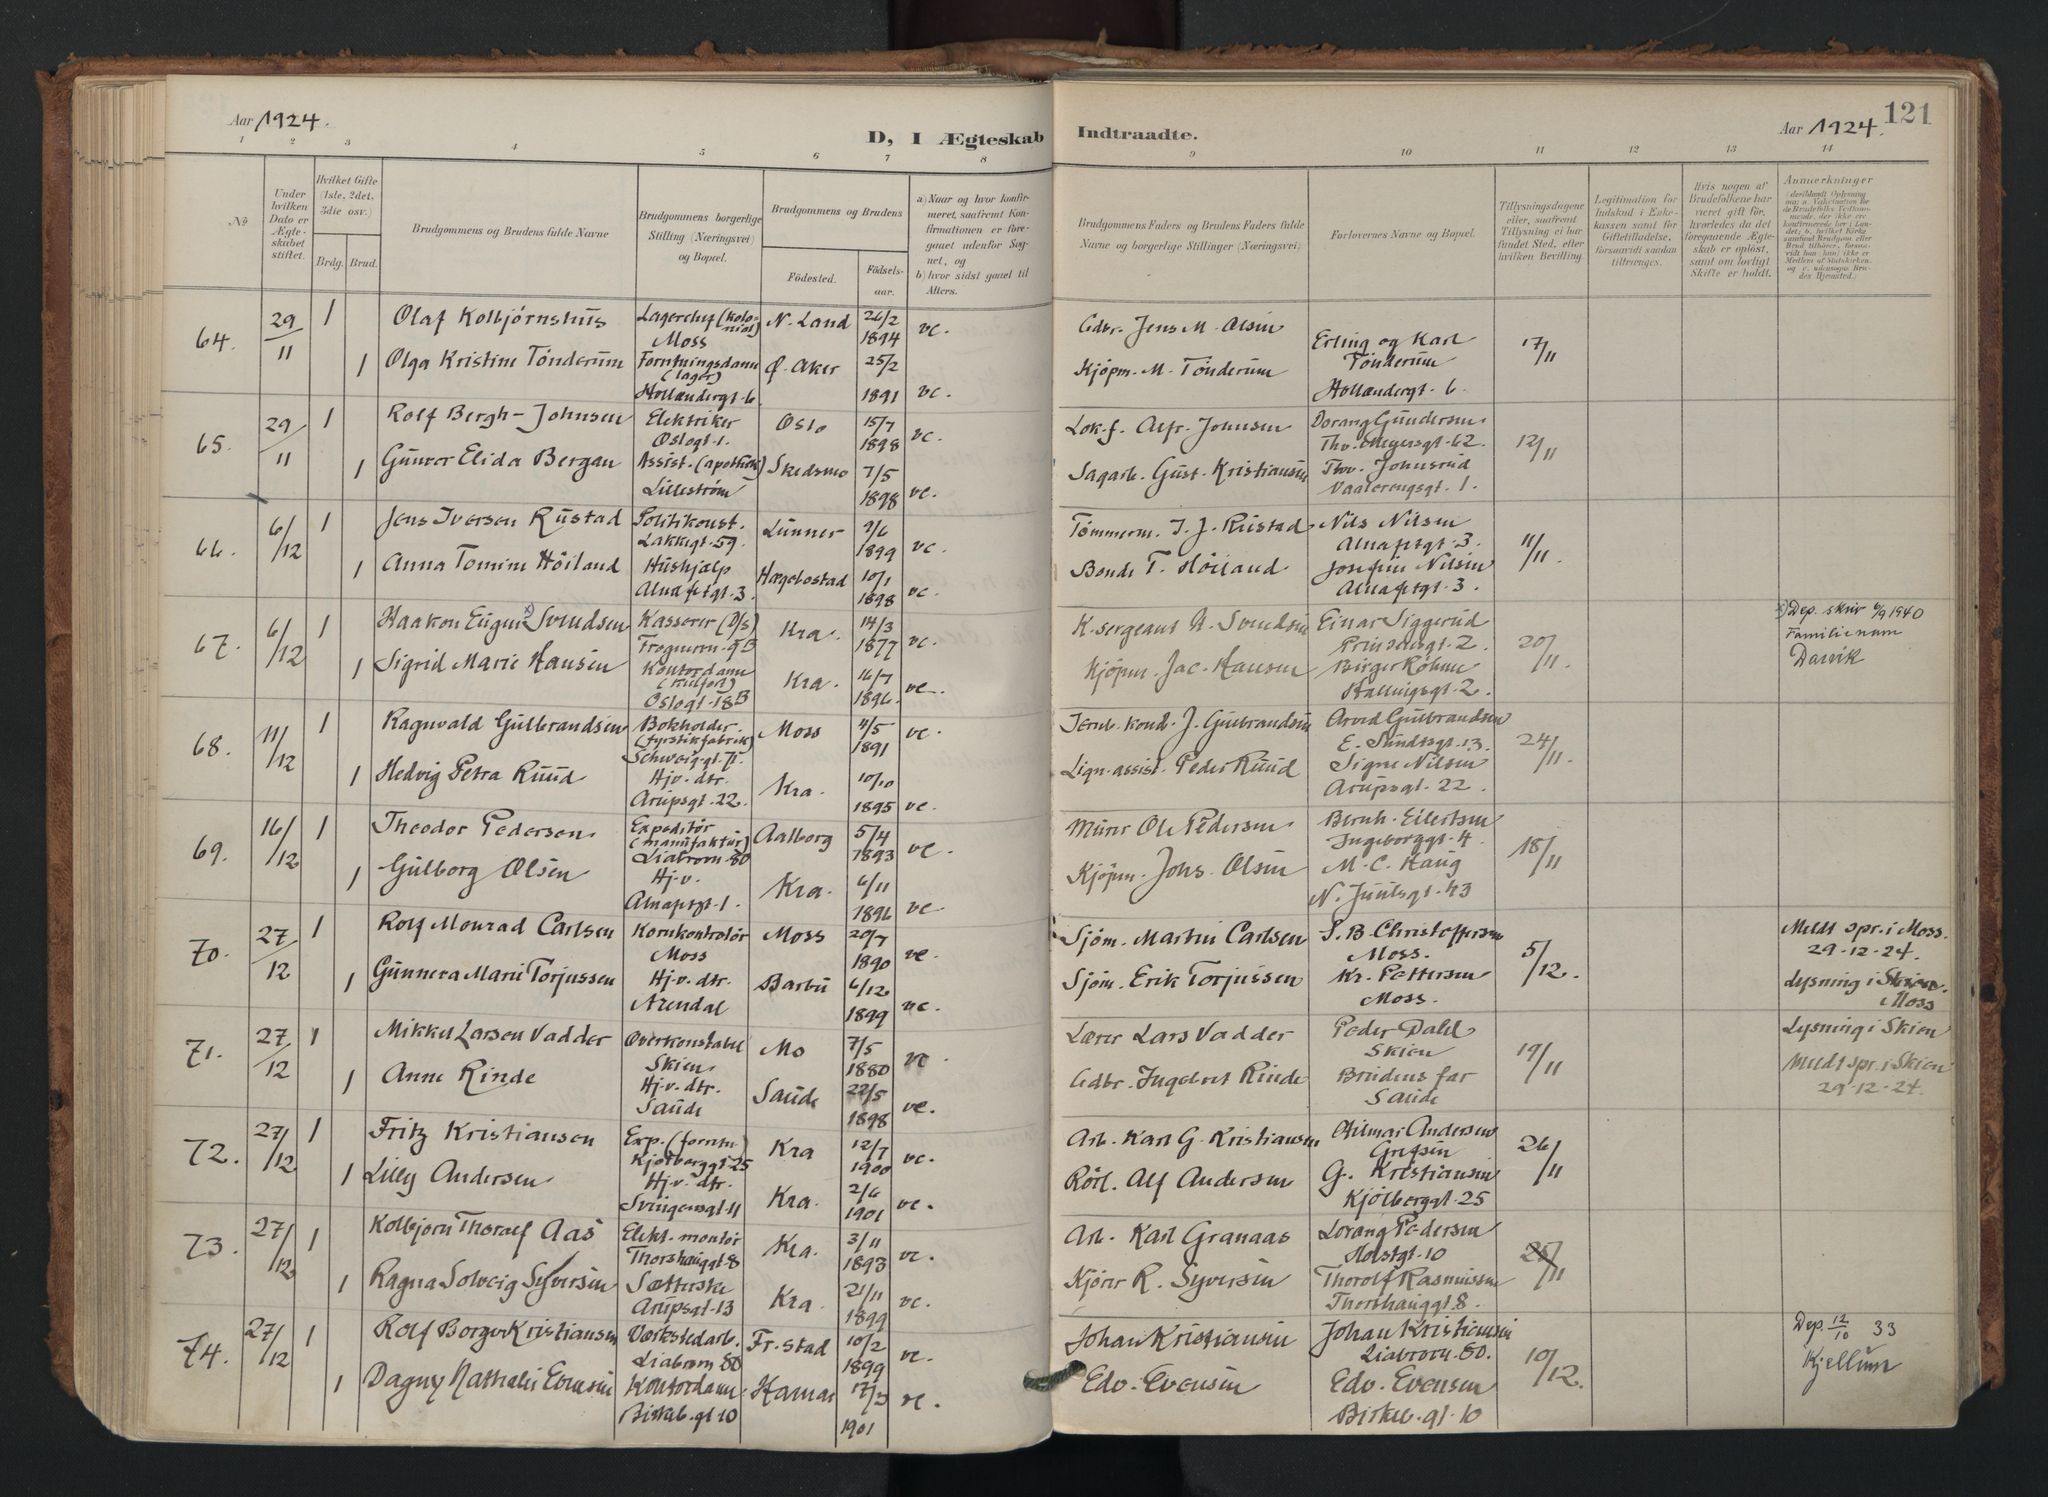 Aar 1924.
D, I Ægteskab
Indtraadte.
Aar 1924.
121
1 2 3 4 5 6 7 8 9 10 11 12 13 14
No
Under hvilken Dato er Ægteskabet stiftet.
Hvilket Gifte (1ste, 2det, 3die osv.)
Brdg. Brud.
Brudgommens og Brudens fulde Navne
Brudgommens borgerlige Stilling (Næringsvei) og Bopæl.
Brudgommens og Brudens
Fødested. Fødselsaar.
a) Naar og hvor konfirmeret, saafremt Konfirmationen er foregaaet udenfor Sognet, og
b) hvor sidst gaaet til Alters.
Brudgommens Faders og Brudens Faders fulde Navne og borgerlige Stillinger (Næringsvei)
Forlovernes Navne og Bopæl.
Tillysningsdagene eller, saafremt Tillysning ei har fundet Sted, efter hvilken Bevilling.
Legitimation for Indskud i Enkekassen samt for Giftetilladelse, forsaavidt saadan tiltrænges.
Hvis nogen af Brudefolkene har været gift før, hvorledes da det foregaaende Ægteskab er opløst, samt om lovligt Skifte er holdt.
Anmerkninger
64. 29/11 1 Olaf Kolbjørnshus Lagerchef (kolonial) Moss N. Land 26/2 1894 vc. Gdbr. Jens M. Olsen Erling og Karl Tønderum 17/11
1 Olga Kristine Tønderum Forretningsdame (lager) Hollændergt. 6 Ø. Aker 25/2 1891 vc. Kjøpm. M. Tønderum Hollændergt. 6.
65. 29/11 1 Rolf Bergh-Johnsen Elektriker Oslogt. 1. Oslo 15/7 1898 vc. Lok.f. Alfr. Johnsen Dorang Gundersen Thv. Meyersgt. 62. 12/11
1 Gunvor Elida Bergan Assist. (apothek) Lillestrøm Skedsmo 7/5 1898 vc. Sagarb. Gust. Kristiansen Thv. Johnsrud Vaalerengsgt. 1.
66. 6/12 1 Jens Iversen Rustad Politikonst. Lakkegt. 59. Lunner 2/6 1899 vc. Tømmerm. I. J. Rustad Nils Nilsen Alnafetgt. 3. 11/11
1 Anna Tomine Höiland Hushjælp Alnafetgt. 3 Hægebostad 10/1 1898 vc. Bonde T. Höiland Josefine Nilsen Alnafetgt. 3.
67. 6/12 1 Haakon Eugen x) Svendsen Kasserer (D/S) Frognerv. 9B Kra. 14/3 1877 vc. K. sergeant A. Svendsen Einar Siggerud Prinsensgt. 2. 20/11 x) Dep. skriv 6/9 1940 Familienavn Darvik
1 Sigrid Marie Hansen Kontordame Oslogt. 18B Kra. 16/7 1896. vc. Kjøpm. Jac. Hansen Birger Röhme Hallingsgt. 2.
68. 11/12 1 Ragnvald Gulbrandsen Bokholder (fyrstikfabrik) Schweigg. 71. Moss 4/5 1891 vc. Jernb. kond. J. Gulbrandsen Arvid Gulbrandsen E. Sundtsgt. 13. 24/11.
1 Hedvig Petra Ruud Hjv. dtr. Arupsgt. 22. Kra. 10/10 1895 vc. Lign. assist. Peder Ruud Signe Nilsen Arupsgt. 22.
69. 16/12 1 Theodor Pedersen Expeditör (manufaktur) Liabrovn. 80 Aalborg 5/4 1893 vc. Murer Ole Pedersen Bernh. Eilertsen Ingeborggt. 4 18/11
1 Gulborg Olsen Hj.v. Alnafetgt. 1. Kra. 6/11 1896 vc. Kjøpm. Johs. Olsen M. C. Haug N. Juulsgt. 43
70. 27/12 1 Rolf Monrad Carlsen Kornkontrolör Moss Moss 20/7 1890 vc. Sjöm. Martin Carlsen S. B. Christoffersen Moss. 5/12. Meldt spr. i Moss. 29-12-24.
1 Gunnera Marie Torjussen Hj.v. dtr. Arendal Barbu 6/12 1899 vc. Sjöm. Erik Torjussen Kr. Pettersen Moss. Lysning i Skien. Moss
71. 27/12 1 Mikkel Larsen Vadder Overkonstabel Skien Mo 7/5 1880 vc Lærer Lars Vadder Peder Dahl Skien 19/11 Lysning i Skien
1 Anne Rinde Hj.v. dtr. Saude Saude 22/5 1898 vc. Gdbr. Ingebret Rinde Brudens far Saude Meldt spr. i Skien 29-12-24.
72. 27/12 1 Fritz Kristiansen Exp. (forretn.) Kjølberggt. 25 Kra 12/7 1900 vc. Arb. Karl G. Kristiansen Hilmar Andersen Grefsen 26/11
1 Lilly Andersen Hj.v. dtr. Svingensgt. 11 Kra. 2/6 1901 vc. Rörl. Alf Andersen G. Kristiansen Kjölberggt. 25
73. 27/12 1 Kolbjørn Thoralf Aas Elekt. montör Thorshauggt. 8 Kra. 3/11 1893 vc. Arb. Karl Granaas Lorang Pedersen Holstgt. 10 /11
1 Ragna Solveig Syversen Sætterske Arupsgt. 13 Kra. 21/11 1899 vc. Kjører R. Syversen Thorolf Rasmussen Thorshauggt. 8.
74. 27/12 1 Rolf Borger Kristiansen Værkstedarb. Liabrovn. 80 Fr.stad 10/2 1899 vc. Johan Kristiansen Johan Kristiansen Liabrovn. 80. 10/12. Dep. 12/10 33 Kjellum
1 Dagny Nathalie Evensen Kontordame. Birkeb.gt 10 Hamar 17/3 1901 vc. Edv. Evensen Edv. Evensen Birkeb. gt. 10